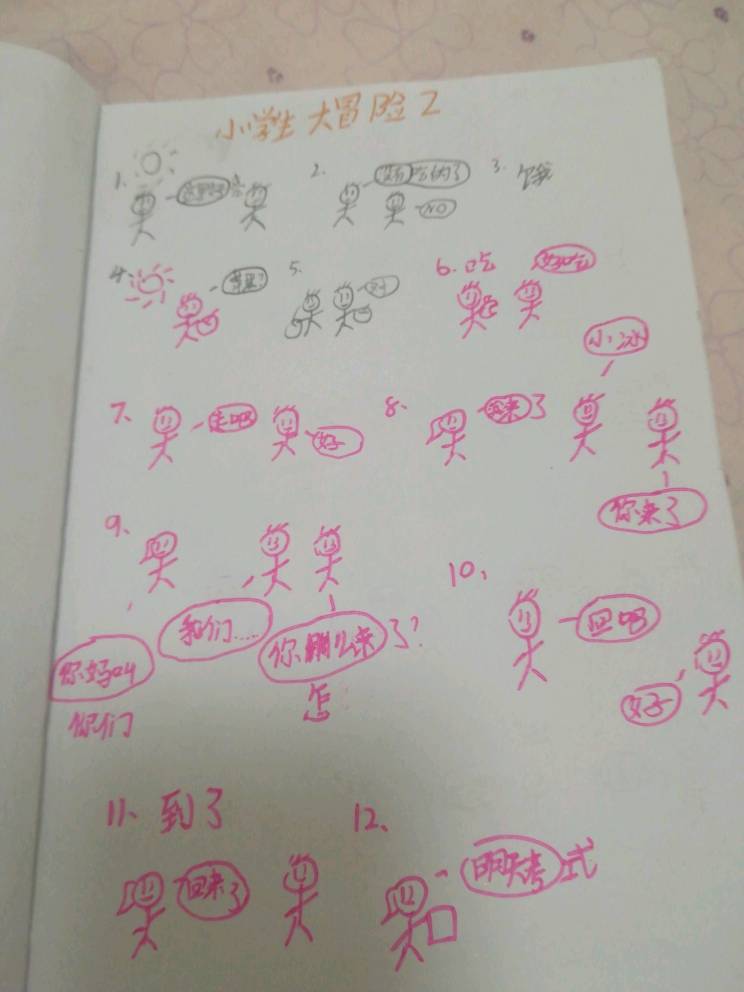 小学生大冒险2
1.
2.
吃的了
NO
3. 饿
4.
5.
6. 吃
好吃
7.
走吧
好
8.
来了
小冰
你来了
9.
你妈叫
你们
我们……
你怎么来了?
10、
回吧
好
11、到了
回来了
12、
明天考式